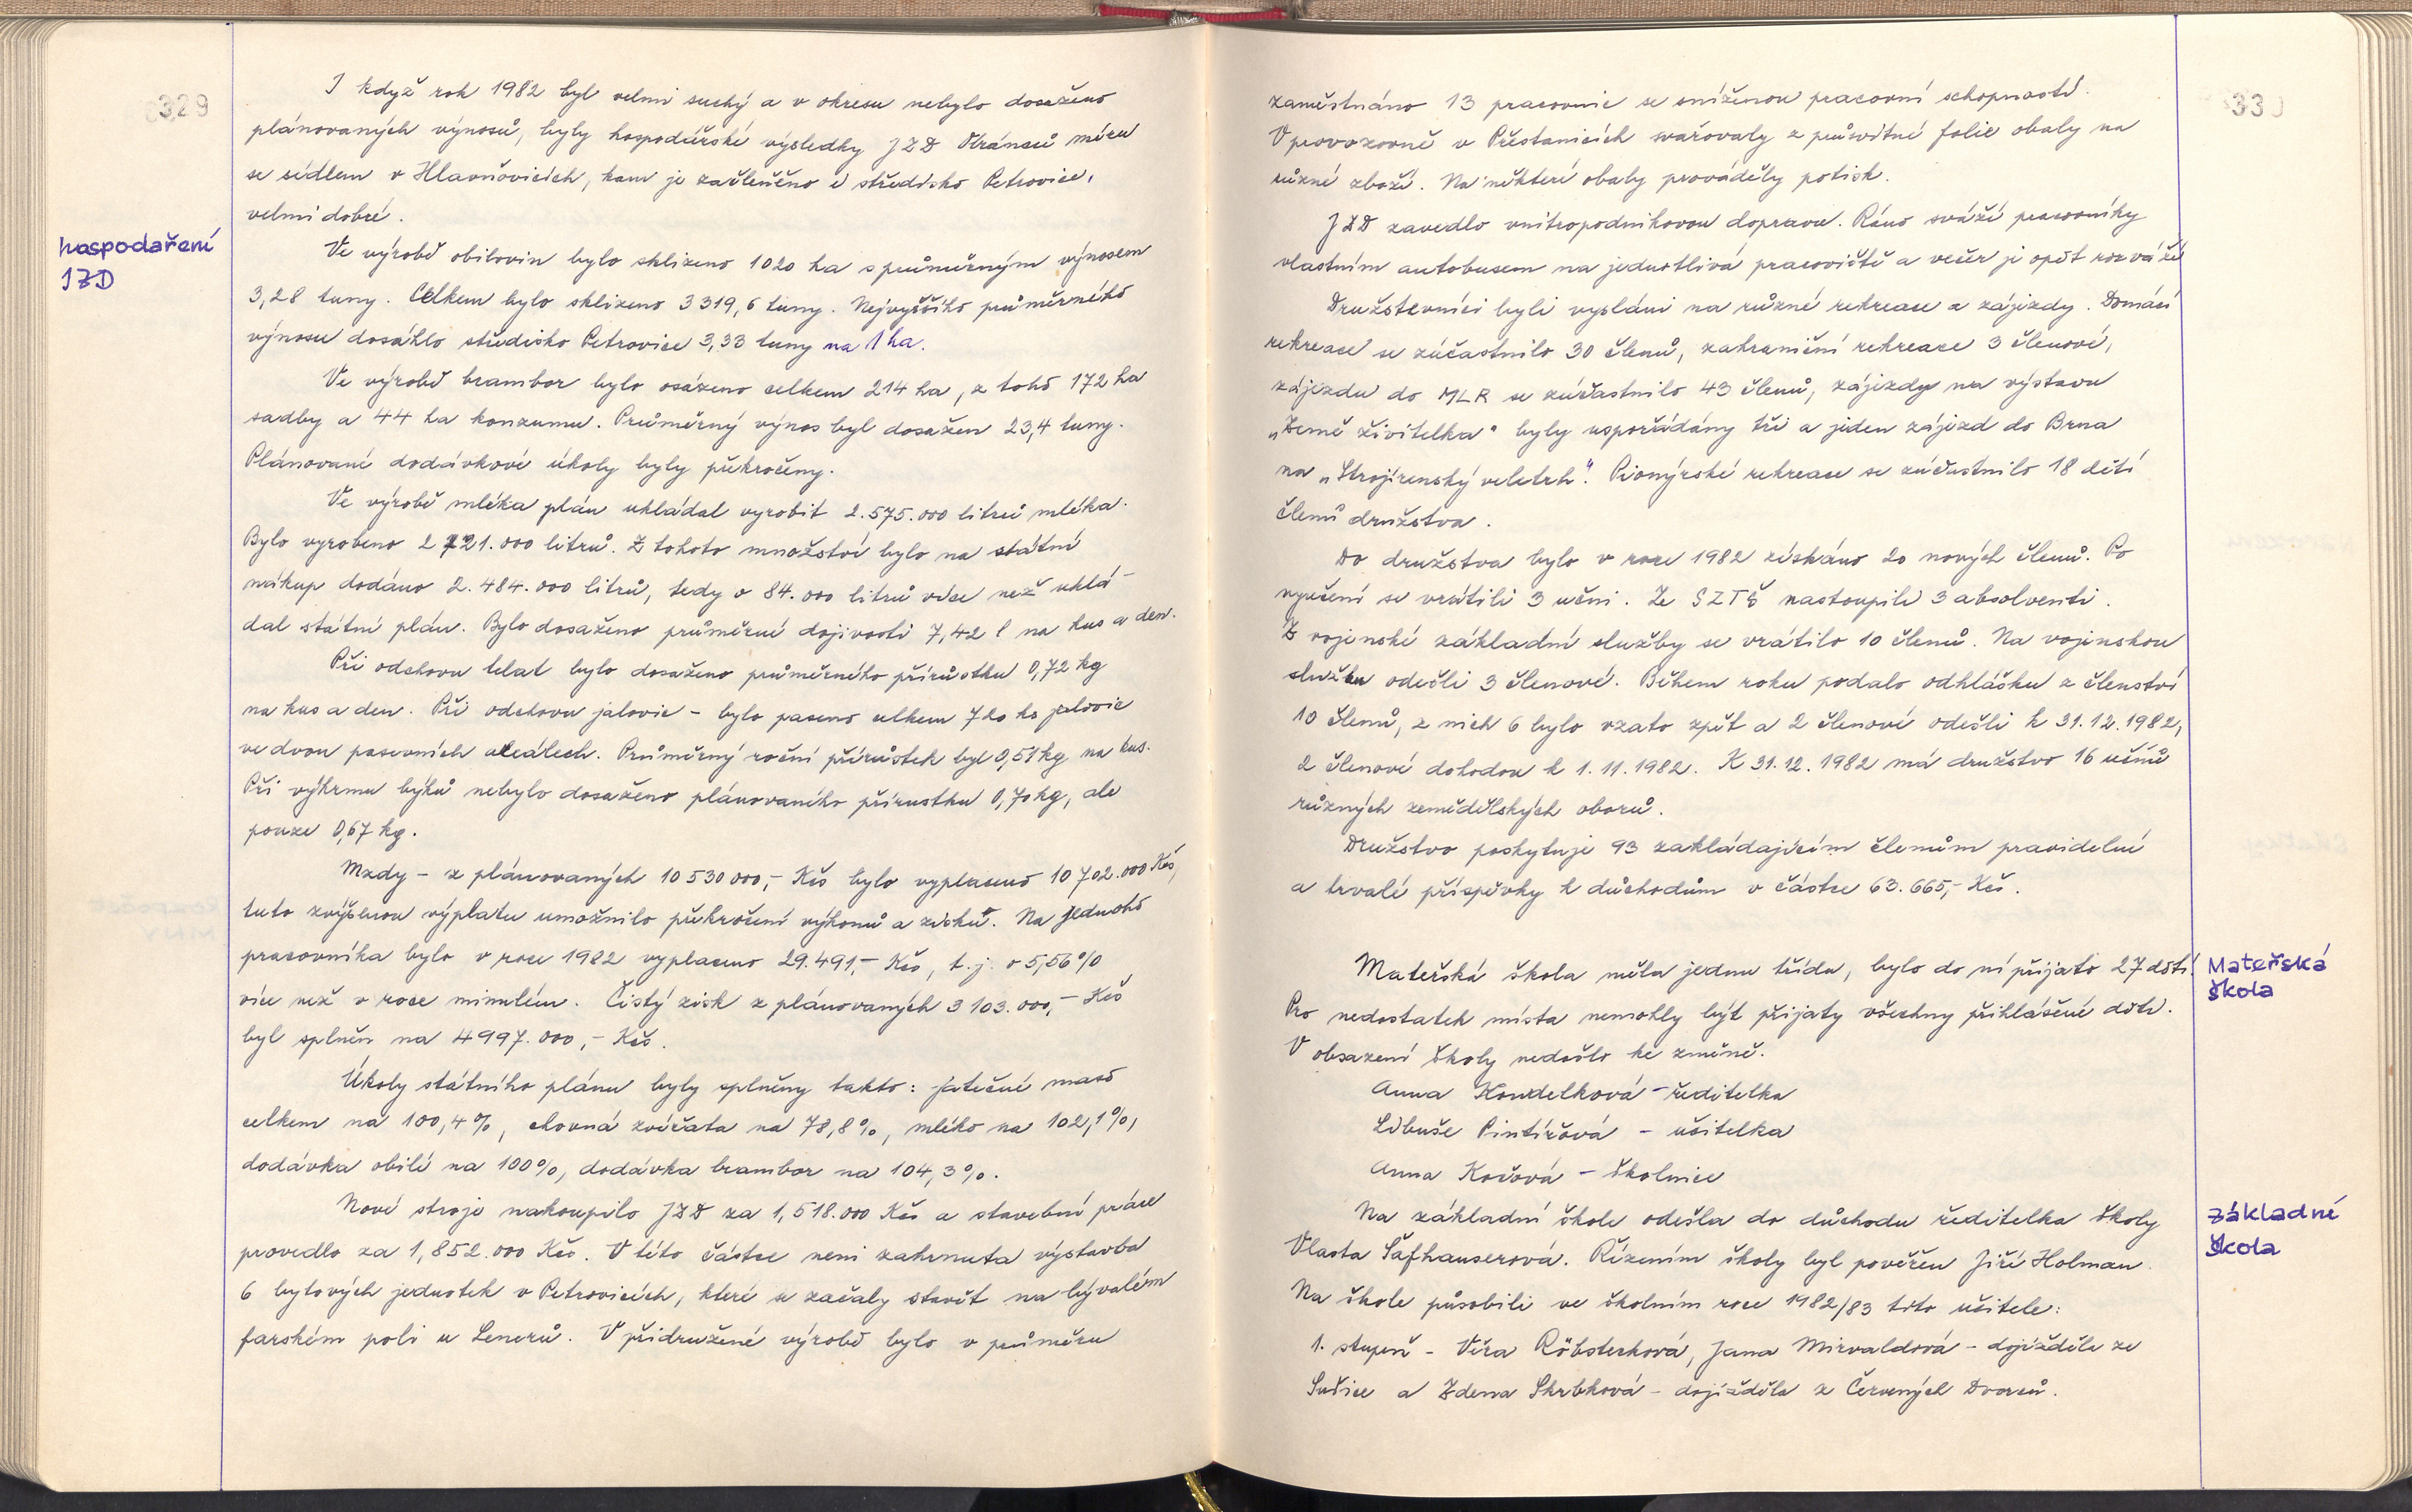 329
I když rok 1982 byl velmi suchý a v okrese nebylo dosaženo
plánovaných výnosů, byly hospodářské výsledky JZD Obránců míru
se sídlem v Hlavňovicích, kam je začleněno i středisko Petrovice,
velmi dobré.
hospodaření
JZD
Ve výrobě obilovin bylo sklizeno 1020 ha s průměrným výnosem
3,28 tuny. Celkem bylo sklizeno 3319,6 tuny. Nejvyššího průměrného
výnosu dosáhlo středisko Petrovice 3,33 tuny na 1 ha.
Ve výrobě brambor bylo osázeno celkem 214 ha, z toho 172 ha
sadby a 44 ha konzumu. Průměrný výnos byl dosažen 23,4 tuny.
Plánované dodávkové úkoly byly překročeny.
Ve výrobě mléka plán ukládal vyrobit 2.575.000 litrů mléka.
Bylo vyrobeno 2 721.000 litrů. Z tohoto množství bylo na státní
nákup dodáno 2.484.000 litrů, tedy o 84.000 litrů více než uklá-
dal státní plán. Bylo dosaženo průměrné dojivosti 7,42 l na kus a den.
Při odchovu telat bylo dosaženo průměrného přírůstku 0,72 kg
na kus a den. Při odchovu jalovic - bylo paseno celkem 720 ks jalovic
ve dvou pasevních areálech. Průměrný roční přírůstek byl 0,51 kg na kus.
Při výkrmu býků nebylo dosaženo plánovaného přírustku 0,70 kg, ale
pouze 0,67 kg.
Mzdy - z plánovaných 10 530 000,- Kčs bylo vyplaceno 10 702.000 Kčs,
tuto zvýšenou výplatu umožnilo překročení výkonů a zisků. Na jednoho
pracovníka bylo v roce 1982 vyplaceno 29.491,- Kčs, t.j. o 5,56 %
více než v roce minulém. Čistý zisk z plánovaných 3 103.000,- Kčs
byl splněn na 4997.000,- Kčs.
Úkoly státního plánu byly splněny takto: jatečné maso
celkem na 100,4 %, chovná zvířata na 78,8 %, mléko na 102,1 %,
dodávka obilí na 100%, dodávka brambor na 104,3 %.
Nové stroje nakoupilo JZD za 1,518.000 Kčs a stavební práce
provedlo za 1,852.000 Kčs. V této částce není zahrnuta výstavba
6 bytových jednotek v Petrovicích, které se začaly stavět na bývalém
farském poli u Lenerů. V přidružené výrobě bylo v průměru
330
zaměstnáno 13 pracovnic se sníženou pracovní schopností.
V provozovně v Přestanicích svařovaly z průsvitné folie obaly na
různé zboží. Na některé obaly prováděly potisk.
JZD zavedlo vnitropodnikovou dopravu. Ráno sváží pracovníky
vlastním autobusem na jednotlivá pracoviště a večer je opět rozváží
Družstevníci byli vysláni na různé rekreace a zájezdy. Domácí
rekreace se zúčastnilo 30 členů, zahraniční rekreace 3 členové,
zájezdu do MLR se zúčastnilo 43 členů, zájezdy na výstavu
„Země živitelka" byly uspořádány tři a jeden zájezd do Brna
na „Strojírenský veletrh". Pionýrské rekreace se zúčastnilo 18 dětí
členů družstva.
Do družstva bylo v roce 1982 získáno 20 nových členů. Po
vyučení se vrátili 3 učni. Ze SZTŠ nastoupili 3 absolventi.
Z vojenské základní služby se vrátilo 10 členů. Na vojenskou
službu odešli 3 členové. Během roku podalo odhlášku z členství
10 členů, z nich 6 bylo vzato zpět a 2 členové odešli k 31.12.1982,
2 členové dohodou k 1.11.1982. K 31.12.1982 má družstvo 16 učňů
různých zemědělských oborů.
Družstvo poskytuje 93 zakládajícím členům pravidelné
a trvalé příspěvky k důchodům v částce 63.665,- Kčs.
Mateřská škola měla jednu třídu, bylo do ní přijato 27 dětí.
Mateřská
škola
Pro nedostatek místa nemohly být přijaty všechny přihlášené děti.
V obsazení školy nedošlo ke změně.
Anna Koudelková - ředitelka
Libuše Pintířová - učitelka
Anna Kočová - školnice
Na základní škole odešla do důchodu ředitelka školy
základní
škola
Vlasta Šafhauserová. Řízením školy byl pověřen Jiří Holman.
Na škole působili ve školním roce 1982/83 tito učitelé:
1. stupeň - Věra Röbsteková, Jana Mirvaldová - dojížděla ze
Sušice a Zdena Skrbková - dojížděla z Červených Dvorců.